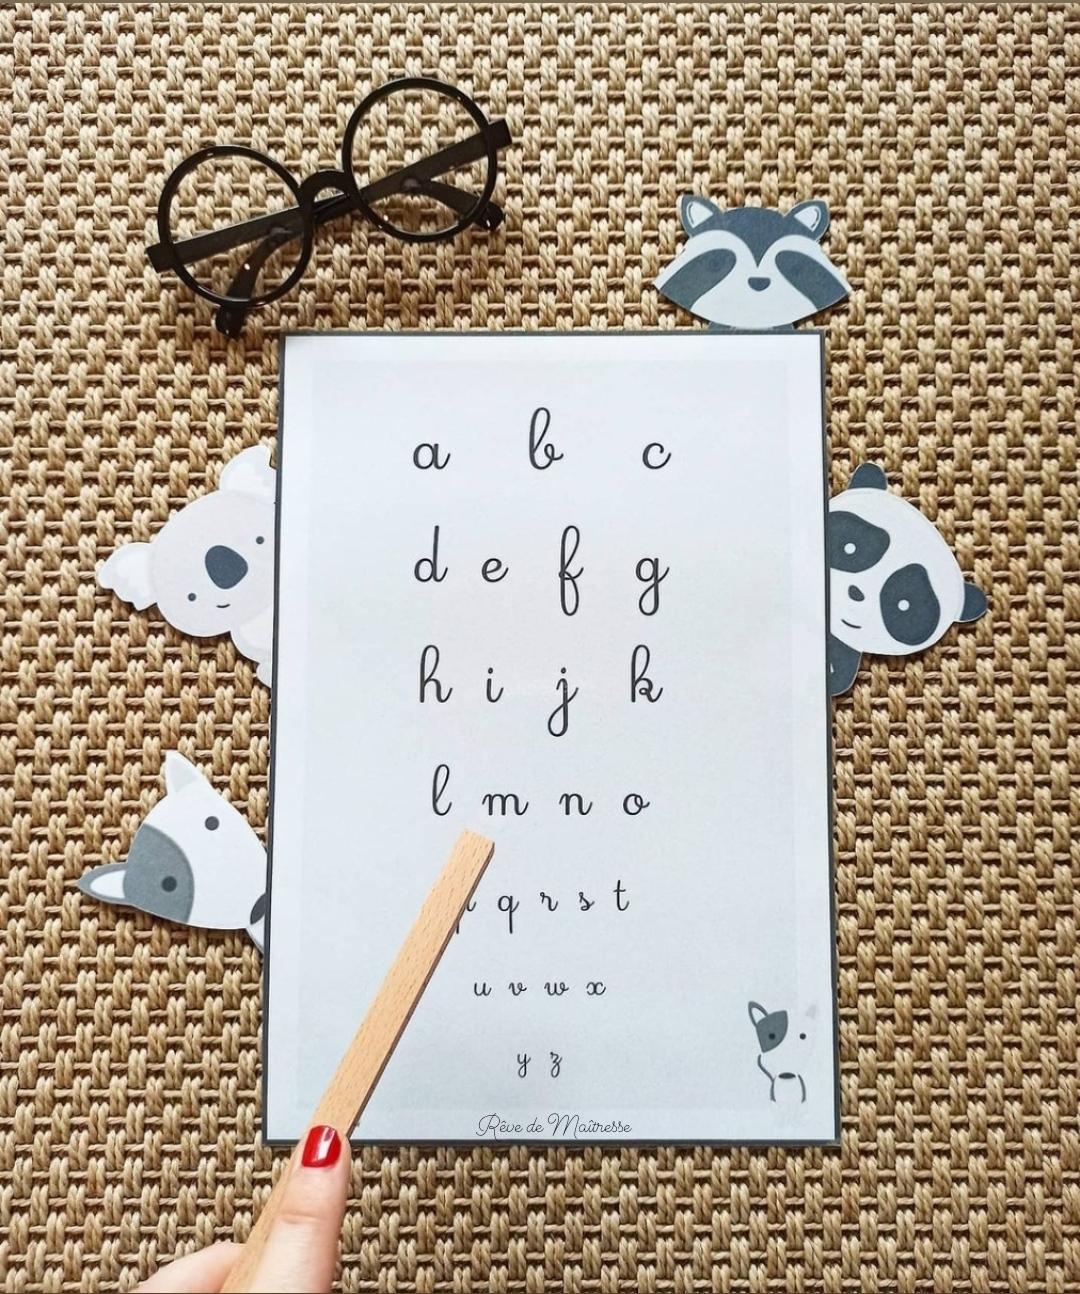 a b c
d e f g
h i j k
l m n o
q r s t
u v w x
y z
Rêve de Maîtresse